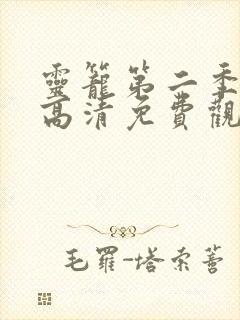 靈籠第二季
高清免費觀
毛羅-塔索蒈